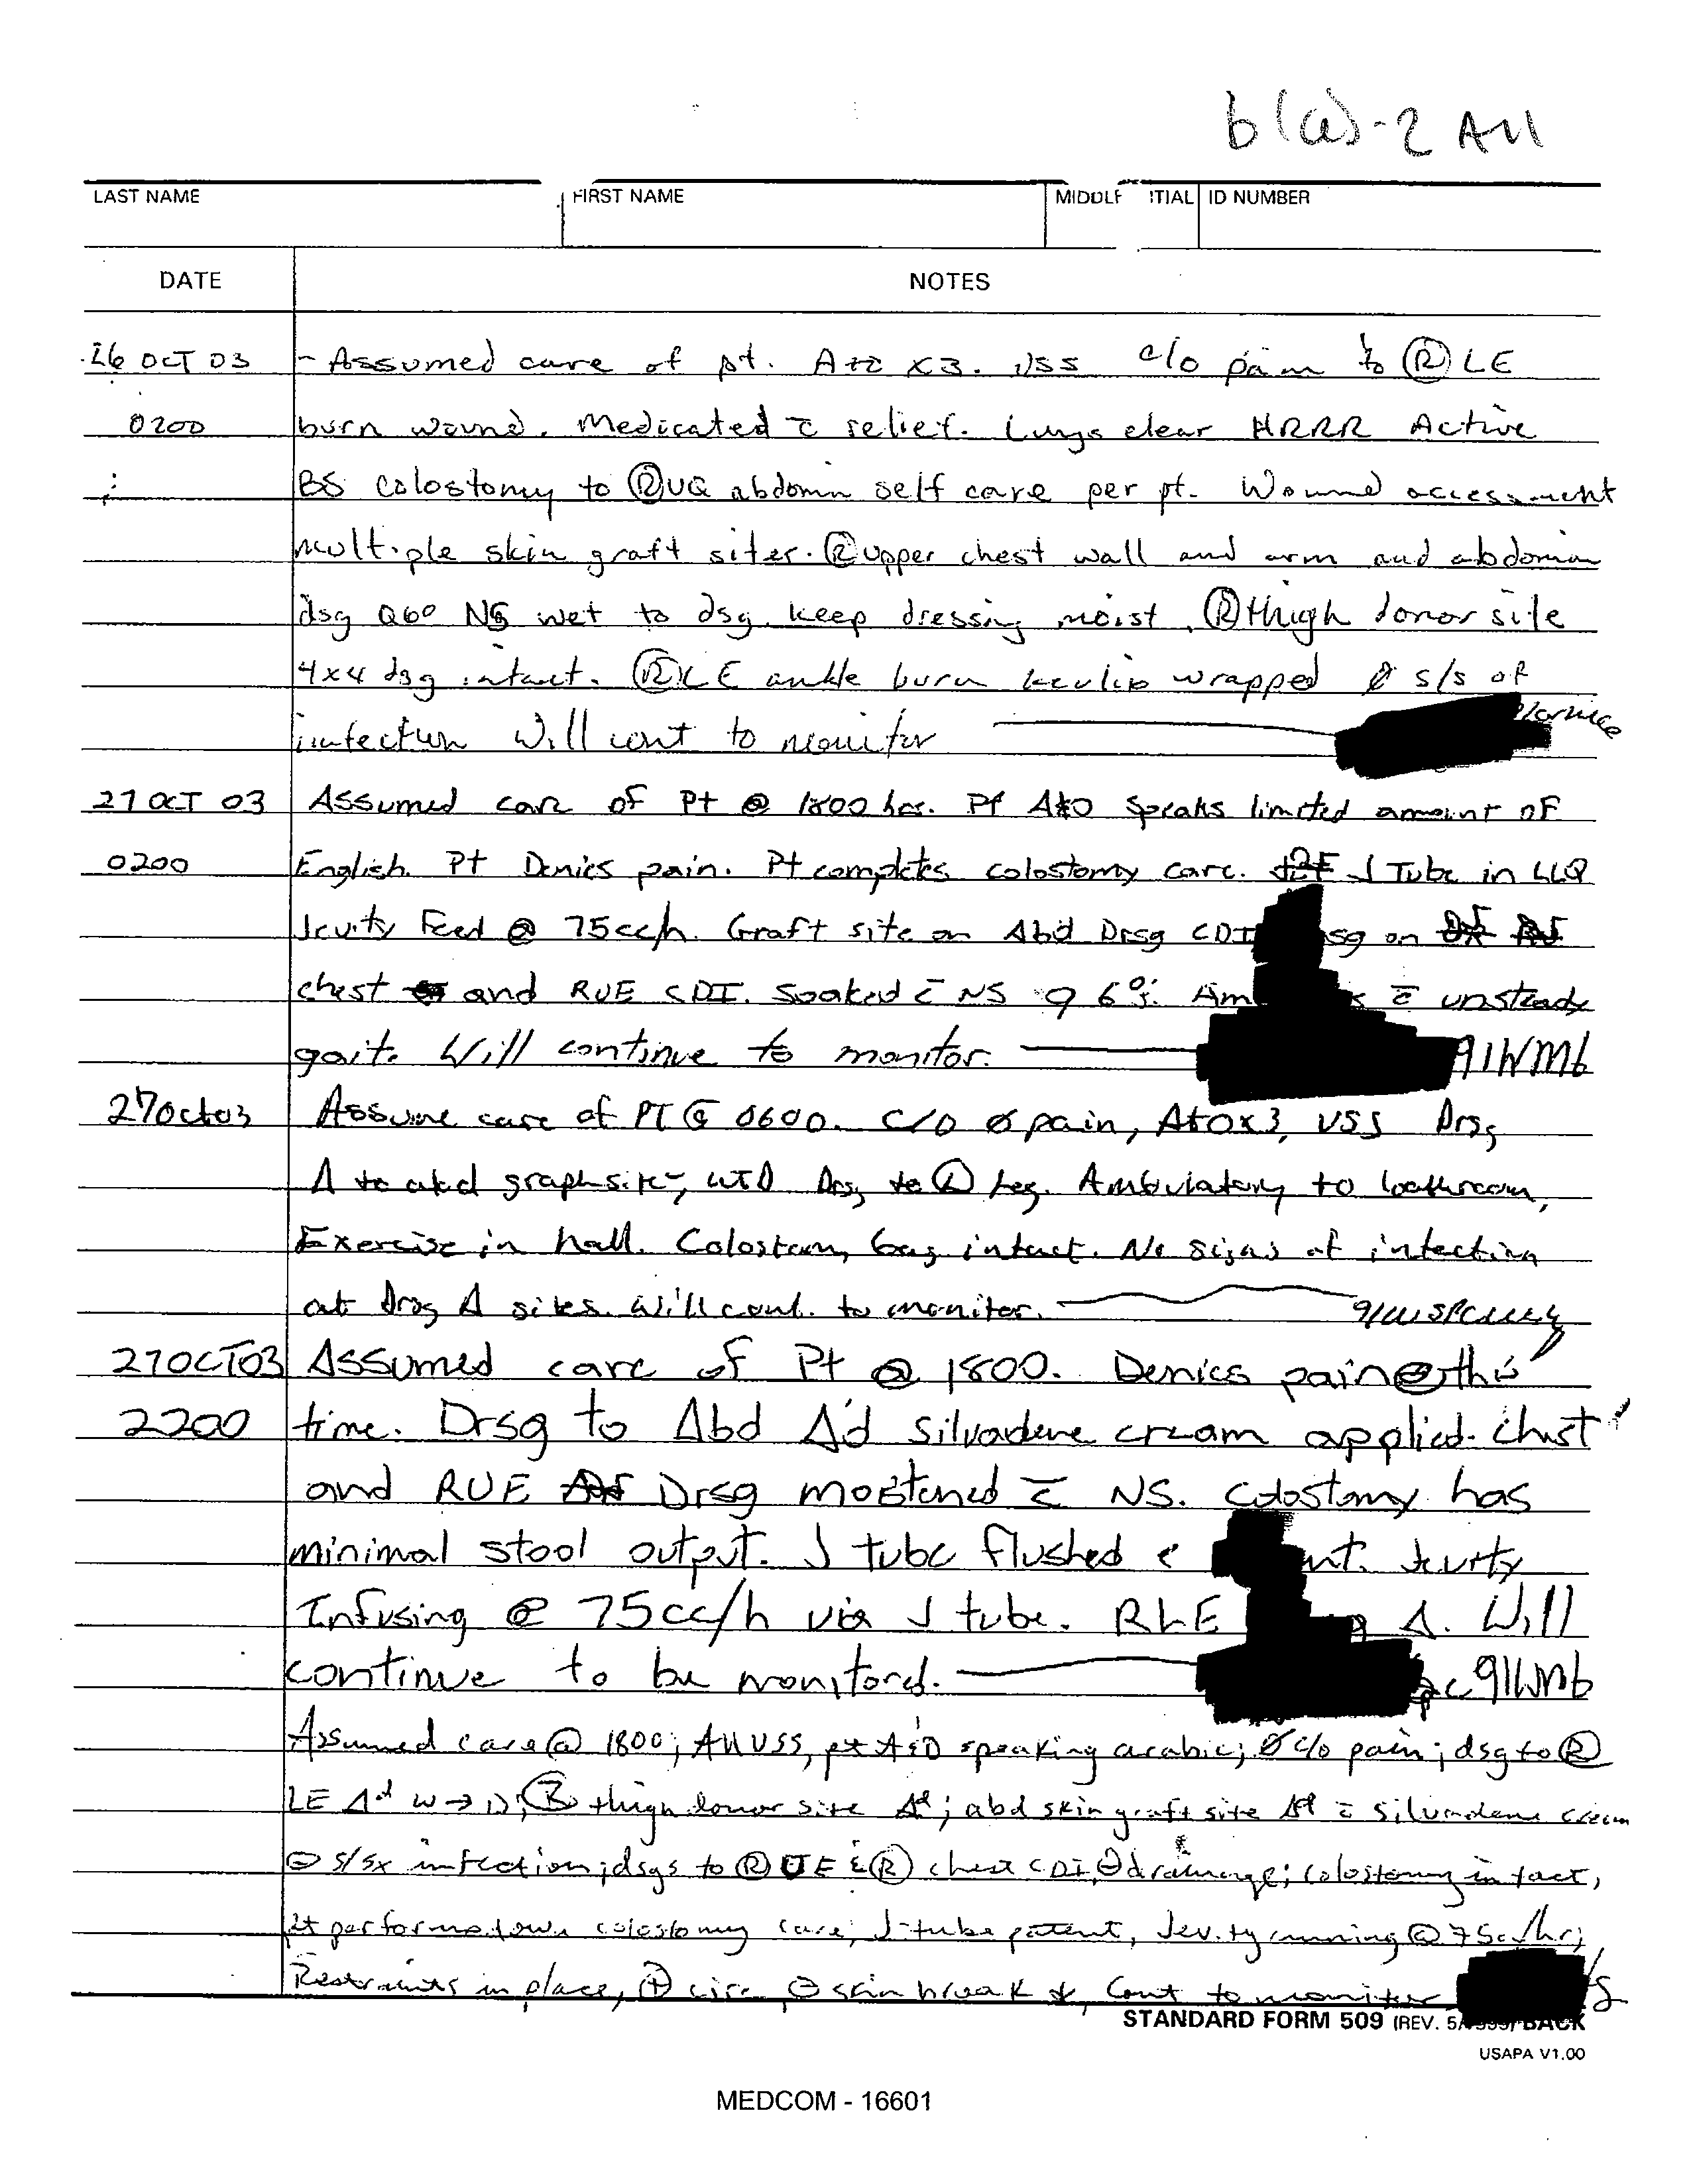 b(6)-2 All
LAST NAME FIRST NAME MIDDLE ITIAL ID NUMBER
DATE NOTES
26 OCT 03 - Assumed care of pt. A+O x3. VSS c/o pain to Ⓡ LE
0200 burn wound. Medicated c̄ relief. Lungs clear HRRR Active
BS colostomy to ⓇUQ abdomin self care per pt. Wound accessment
multiple skin graft sites. Ⓡ upper chest wall and arm and abdomin
dsg Q6° NS wet to dsg. keep dressing moist. Ⓡ thigh donor site
4x4 dsg intact. ⓇLE ankle burn kerlix wrapped Ø s/s of
infection Will cont to monitor
27 OCT 03 Assumed care of Pt @ 1800 hrs. Pt A+O Speaks limited amount of
0200 English. Pt Denies pain. Pt completes colostomy care. J Tube in LLQ
Jevity Feed @ 75cc/h. Graft site on Abd Drsg CDI sg on
chest and RUE CDI. Soaked c̄ NS q 6°. Am s c̄ unsteady
gait. Will continue to monitor. 91WM6
27Oct03 Assume care of PT @ 0600. C/O Ø pain, A+Ox3, VSS Drsg
Δ to abd graph site, WTD Drsg to Ⓛ Leg. Ambulatory to bathroom,
Exercise in hall. Colostomy bag intact. No signs of infection
at Drsg Δ sites. Will cont. to monitor.
27OCT03 Assumed care of Pt @ 1800. Denies pain @ this
2200 time. Drsg to Abd Δ'd silvadene cream applied. Chest
and RUE Drsg moistened c̄ NS. Colostomy has
minimal stool output. J tube flushed c̄ nt. Jevity
Infusing @ 75cc/h via J tube. RLE g Δ. Will
continue to be monitored. pc 91WM6
Assumed care @ 1800; All VSS, pt A+O speaking arabic; Ø c/o pain; dsg to Ⓡ
LE Δ'd W→D; Ⓡ thigh donor site Δ'd; abd skin graft site Δ'd c̄ silvadene cream
⊖ s/sx infection; dsgs to Ⓡ UE & Ⓡ chest CDI, ⊖ drainage; Colostomy intact,
Pt performs own colostomy care; J-tube patent, Jevity running @ 75cc/hr;
Restraints in place, ⊕ circ ⊖ skin break ↓, Cont to monitor
STANDARD FORM 509 (REV. 5/ BACK
USAPA V1.00
MEDCOM - 16601